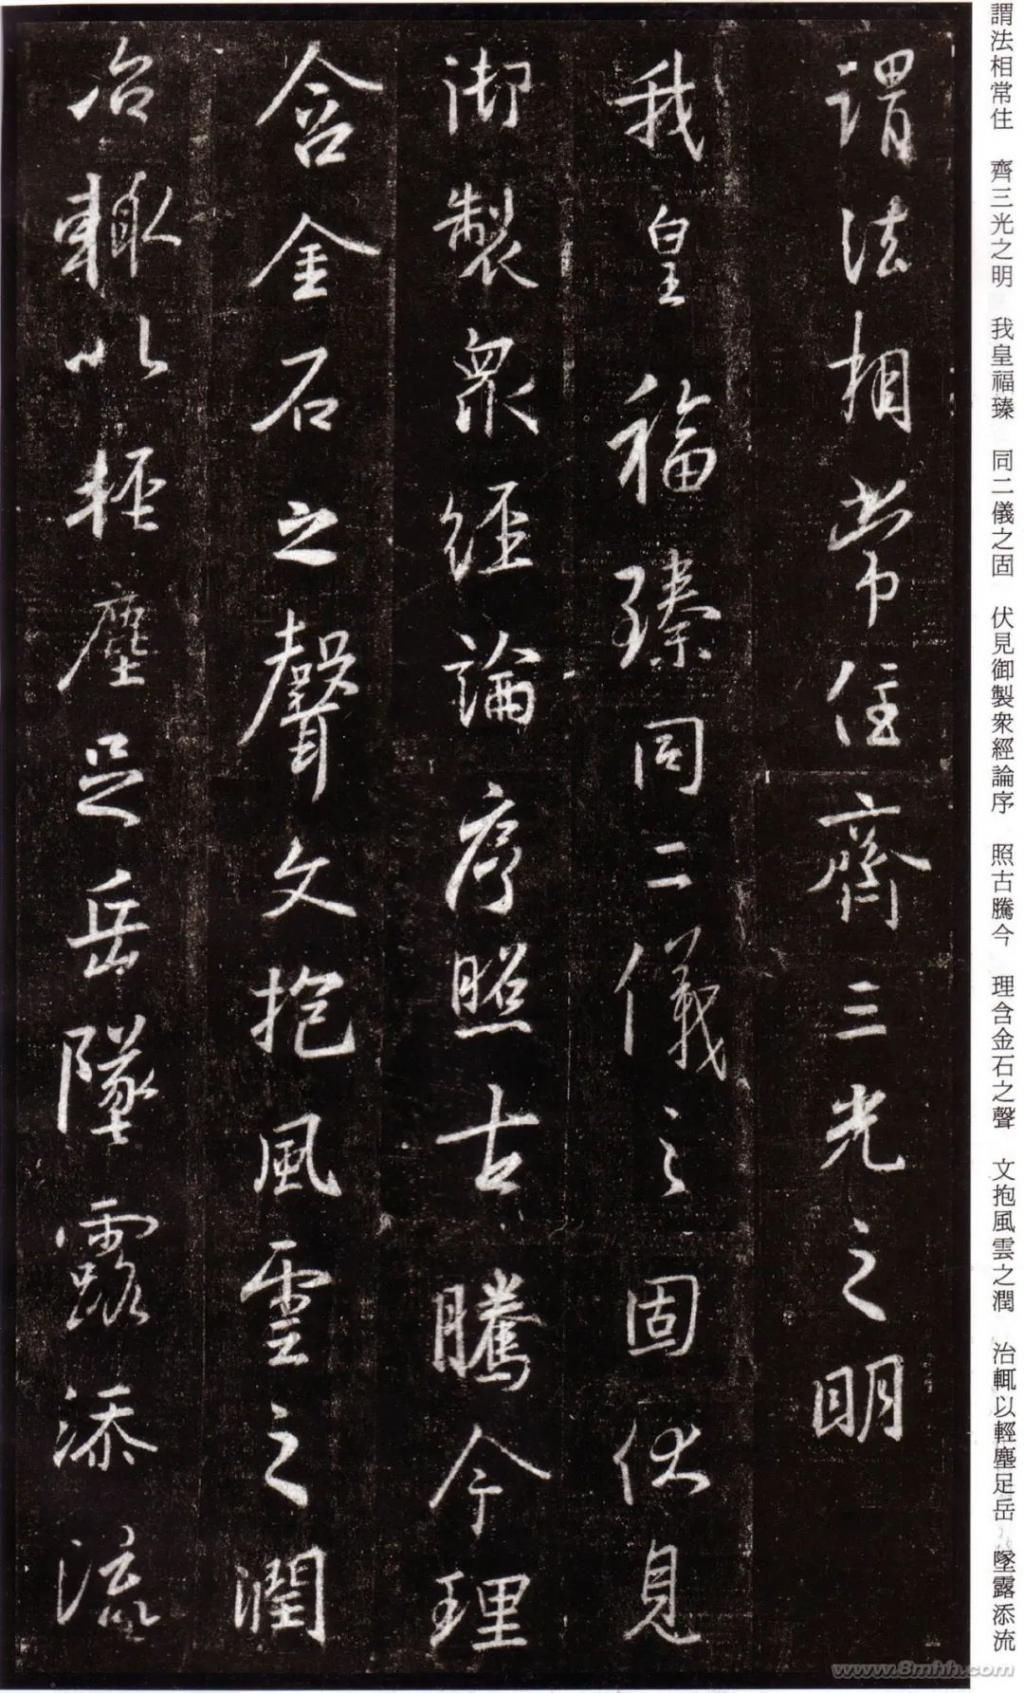 謂法相常住　齊三光之明　我皇福臻　同二儀之固　伏見御製衆經論序　照古騰今　理含金石之聲　文抱風雲之潤　治輒以輕塵足岳　墜露添流
謂法相常住齊三光之明
我皇福臻同二儀之固伏見
御製衆經論序照古騰今理
含金石之聲文抱風雲之潤
治輒以輕塵足岳墜露添流
www.8mhh.com